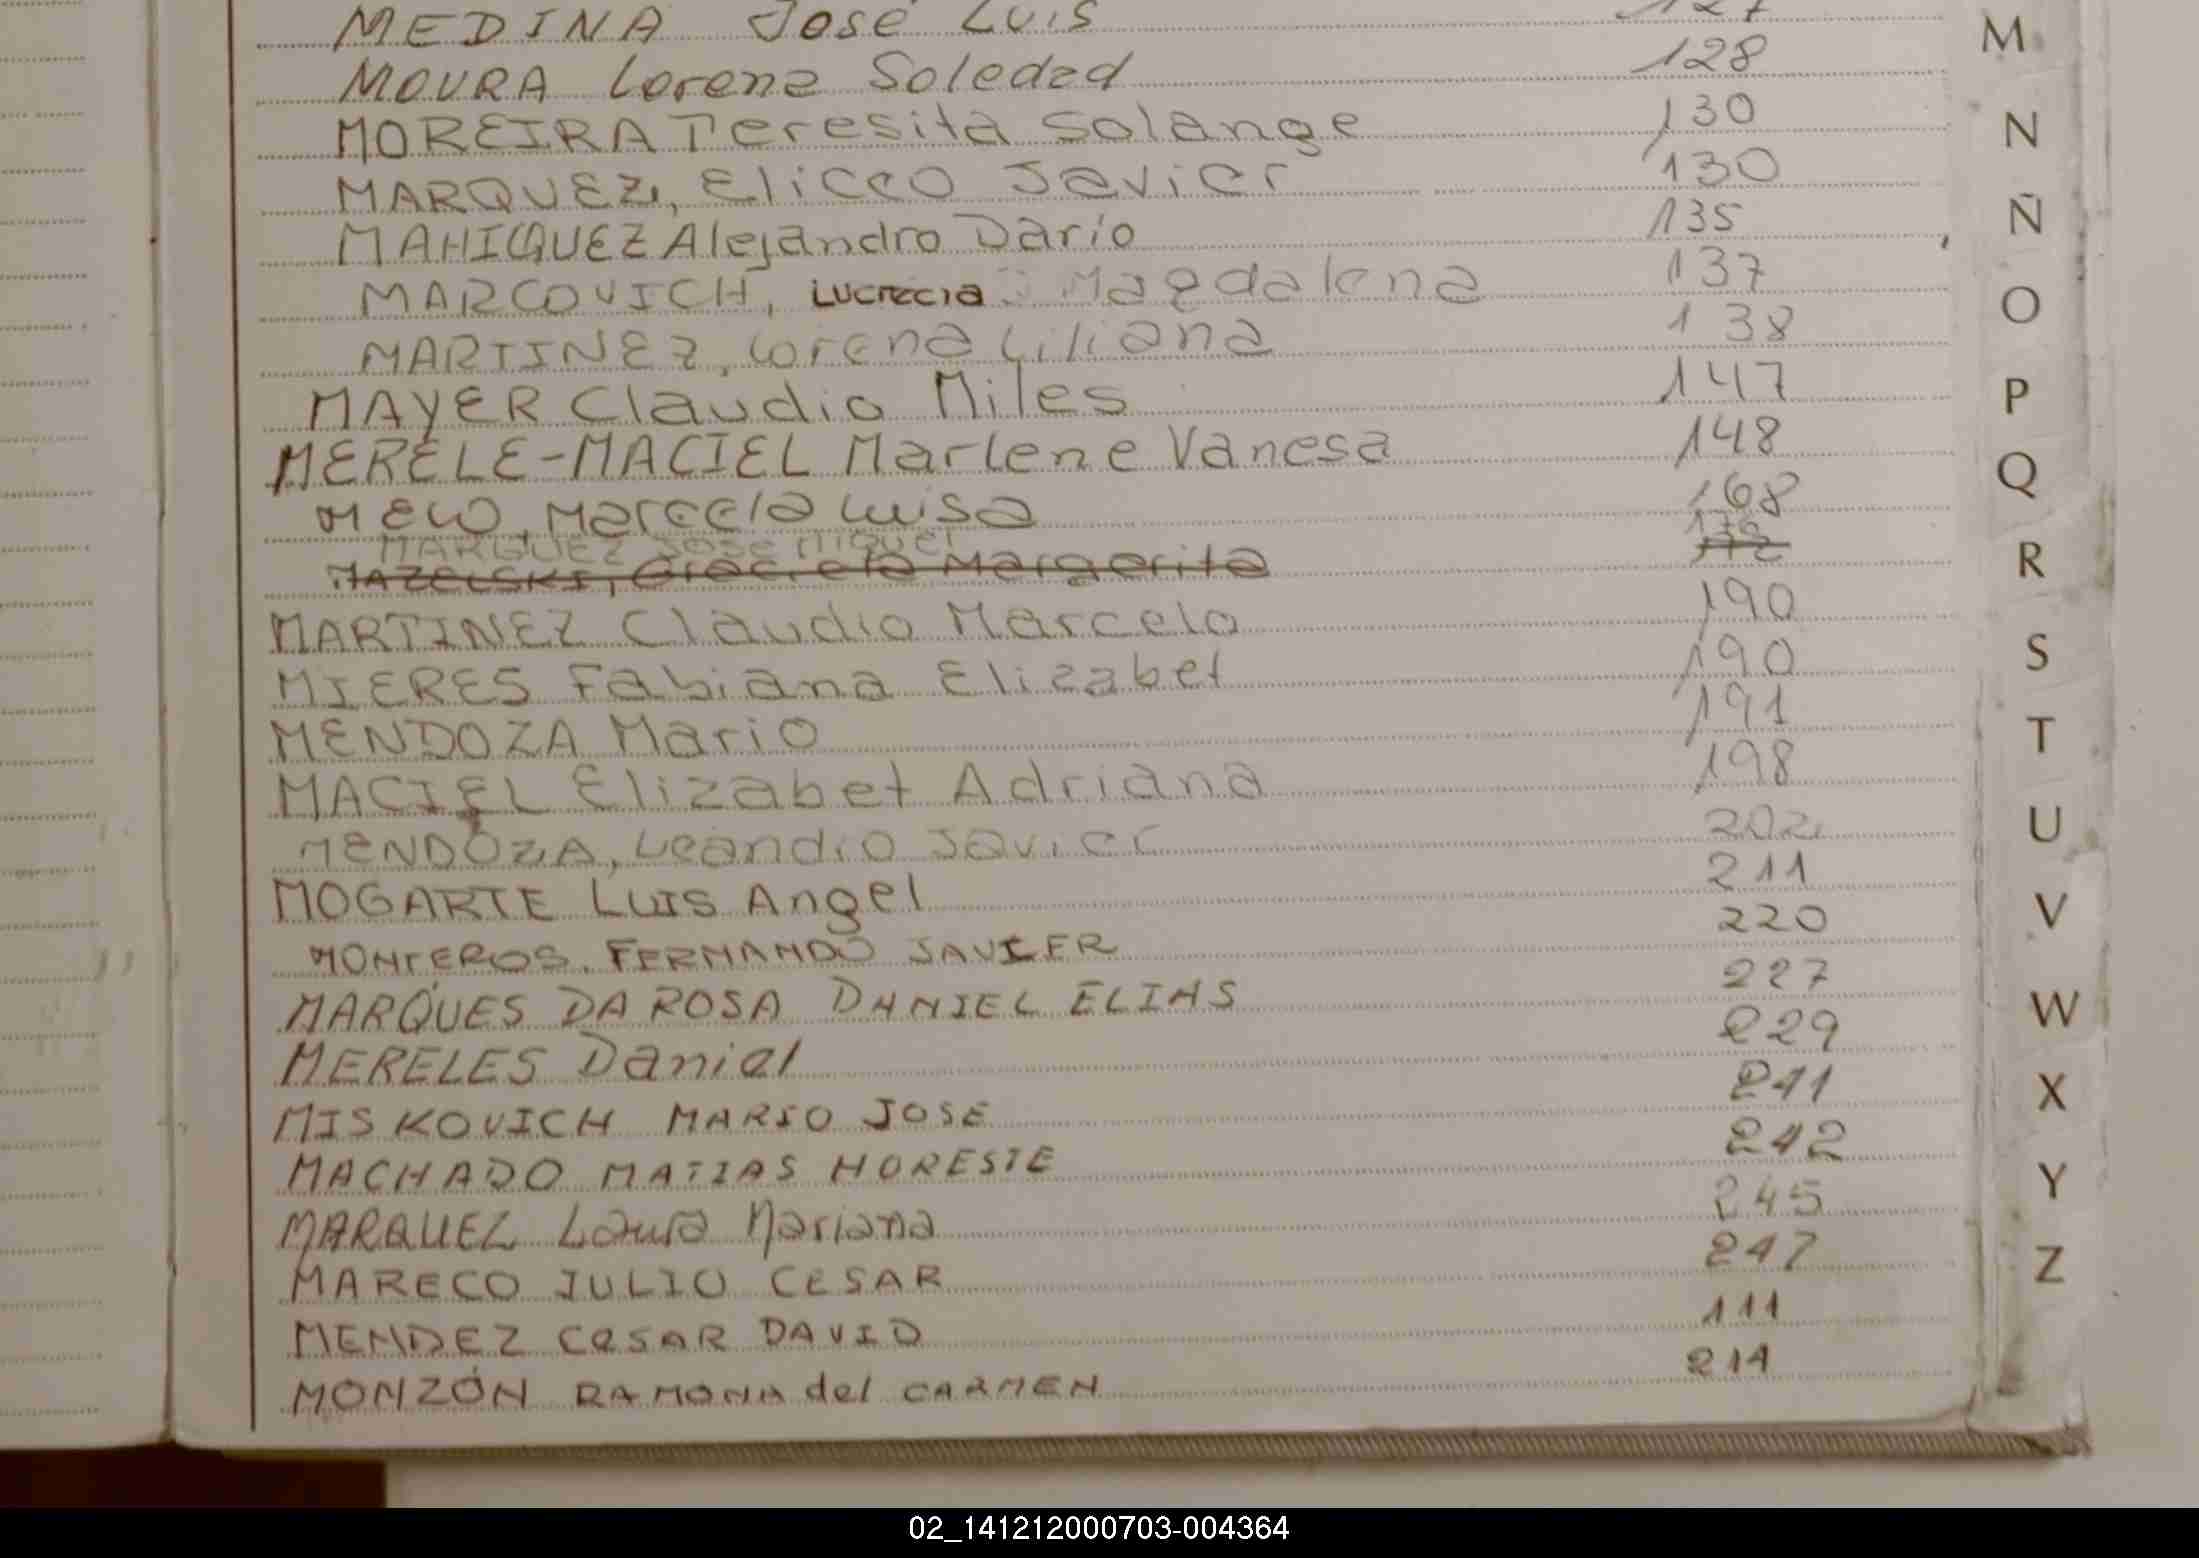 MEDINA José Luis 127
MOURA Lorena Soledad 128
MOREIRA Teresita Solange 130
MARQUEZ, Eliceo Javier 130
MAHIQUEZ Alejandro Dario 135
MARCOVICH, Lucrecia Magdalena 137
MARTINEZ, Lorena Liliana 138
MAYER Claudio Miles 147
MERELE-MACIEL Marlene Vanesa 148
MELO, Marcela Luisa 168
MARQUEZ Jose Miguel
MAZELSKI, Graciela Margarita 172
MARTINEZ Claudio Marcelo 190
MIERES Fabiana Elizabet 190
MENDOZA Mario 191
MACIEL Elizabet Adriana 198
MENDOZA, Leandro Javier 202
MOGARTE LUIS Angel 211
MONTEROS, FERNANDO JAVIER 220
MARQUES DA ROSA DANIEL ELIAS 227
MERELES Daniel 229
MISKOVICH MARIO JOSE 241
MACHADO MATIAS HORESTE 242
MARQUEZ Laura Mariana 245
MARECO JULIO CESAR 247
MENDEZ CESAR DAVID 111
MONZÓN RAMONA del CARMEN 214
M
N
Ñ
O
P
Q
R
S
T
U
V
W
X
Y
Z
02_141212000703-004364